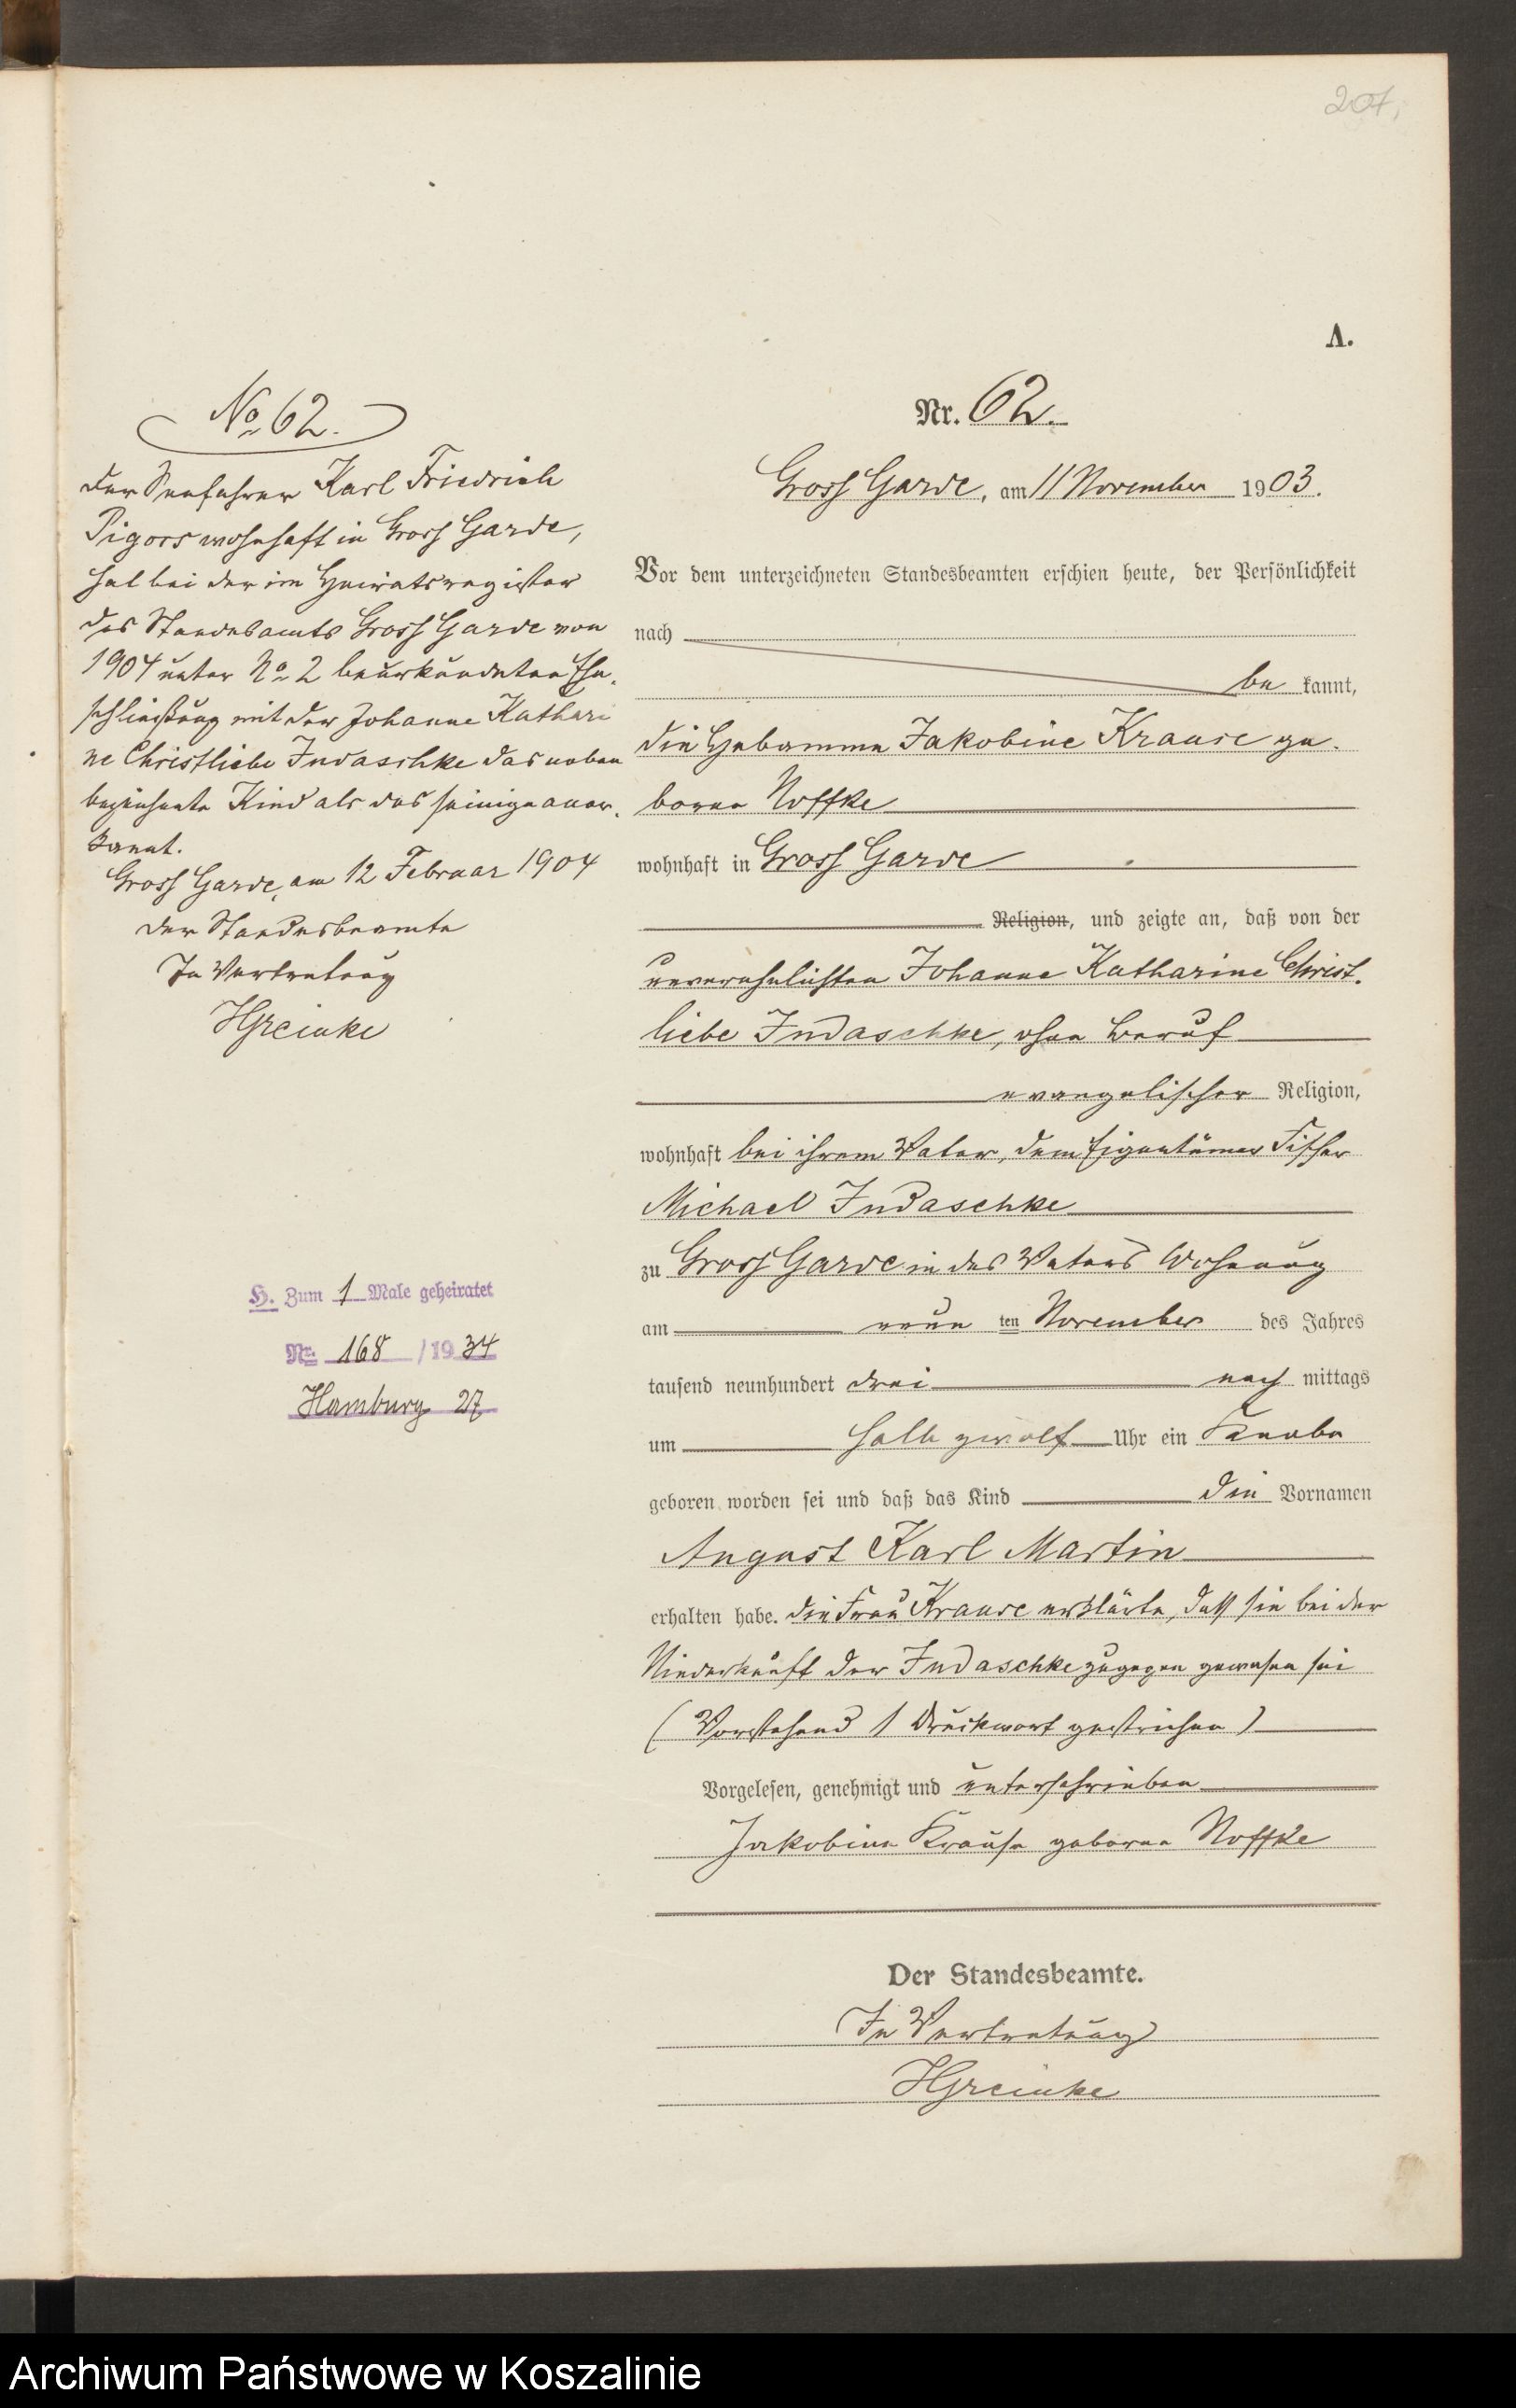 207,
A.
No 62.
Der Seefahrer Karl Friedrich
Pigors wohnhaft in Gross Garde,
hat bei der im Heiratsregister
des Standesamts Gross Garde von
1904 unter No 2 beurkundeten Ehe-
schließung mit der Johanne Kathari
ne Christliebe Judaschke das neben
bezeichnete Kind als das seinige aner-
kannt.
Gross Garde, am 12 Februar 1904
Der Standesbeamte
In Vertretung
HGreinke
H. Zum 1 Male geheiratet
Nr. 168 / 1934
Hamburg 27
Nr. 62.
Gross Garde, am 11 November 1903.
Vor dem unterzeichneten Standesbeamten erschien heute, der Persönlichkeit
nach
be kannt,
die Hebamme Jakobine Krause ge-
borne Noffke
wohnhaft in Gross Garde
Religion, und zeigte an, daß von der
unverehelichten Johanne Katharine Christ-
liebe Judaschke, ohne Beruf
evangelischer Religion,
wohnhaft bei ihrem Vater, dem Eigentümer Fischer
Michael Judaschke
zu Gross Garde in des Vaters Wohnung
am neun ten November des Jahres
tausend neunhundert drei nach mittags
um halb zwölf Uhr ein Knabe
geboren worden sei und daß das Kind die Vornamen
August Karl Martin
erhalten habe. Die Frau Krause erklärte, daß sie bei der
Niederkunft der Judaschke zugegen gewesen sei
(Vorstehend 1 Druckwort gestrichen)
Vorgelesen, genehmigt und unterschrieben
Jakobine Krause geborne Noffke
Der Standesbeamte.
In Vertretung
HGreinke
Archiwum Państwowe w Koszalinie